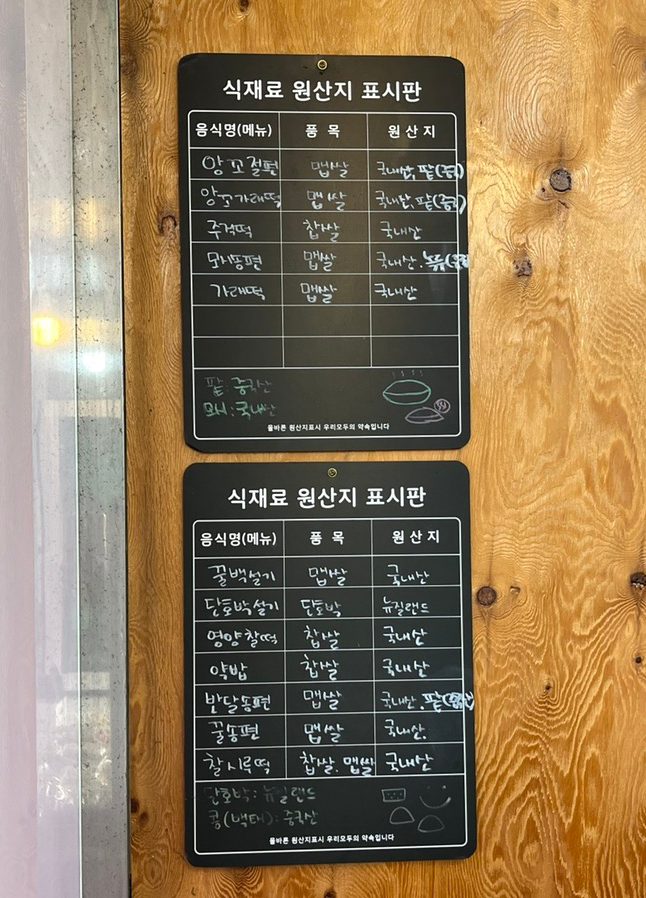 식재료 원산지 표시판
음식명(메뉴) 품 목 원 산 지
앙꼬절편 맵쌀 국내산, 팥(중국)
앙꼬가래떡 맵쌀 국내산, 팥(중국)
주걱떡 찹쌀 국내산
모시송편 맵쌀 국내산.
가래떡 맵쌀 국내산
팥:중국산
모시:국내산
올바른 원산지표시 우리모두의 약속입니다
식재료 원산지 표시판
음식명(메뉴) 품 목 원 산 지
꿀백설기 맵쌀 국내산
단호박설기 단호박 뉴질랜드
영양찰떡 찹쌀 국내산
약밥 찹쌀 국내산
반달송편 맵쌀 국내산. 팥(중국산)
꿀송편 맵쌀 국내산.
찰시루떡 찹쌀. 맵쌀 국내산
단호박:뉴질랜드
콩(백태):중국산
올바른 원산지표시 우리모두의 약속입니다